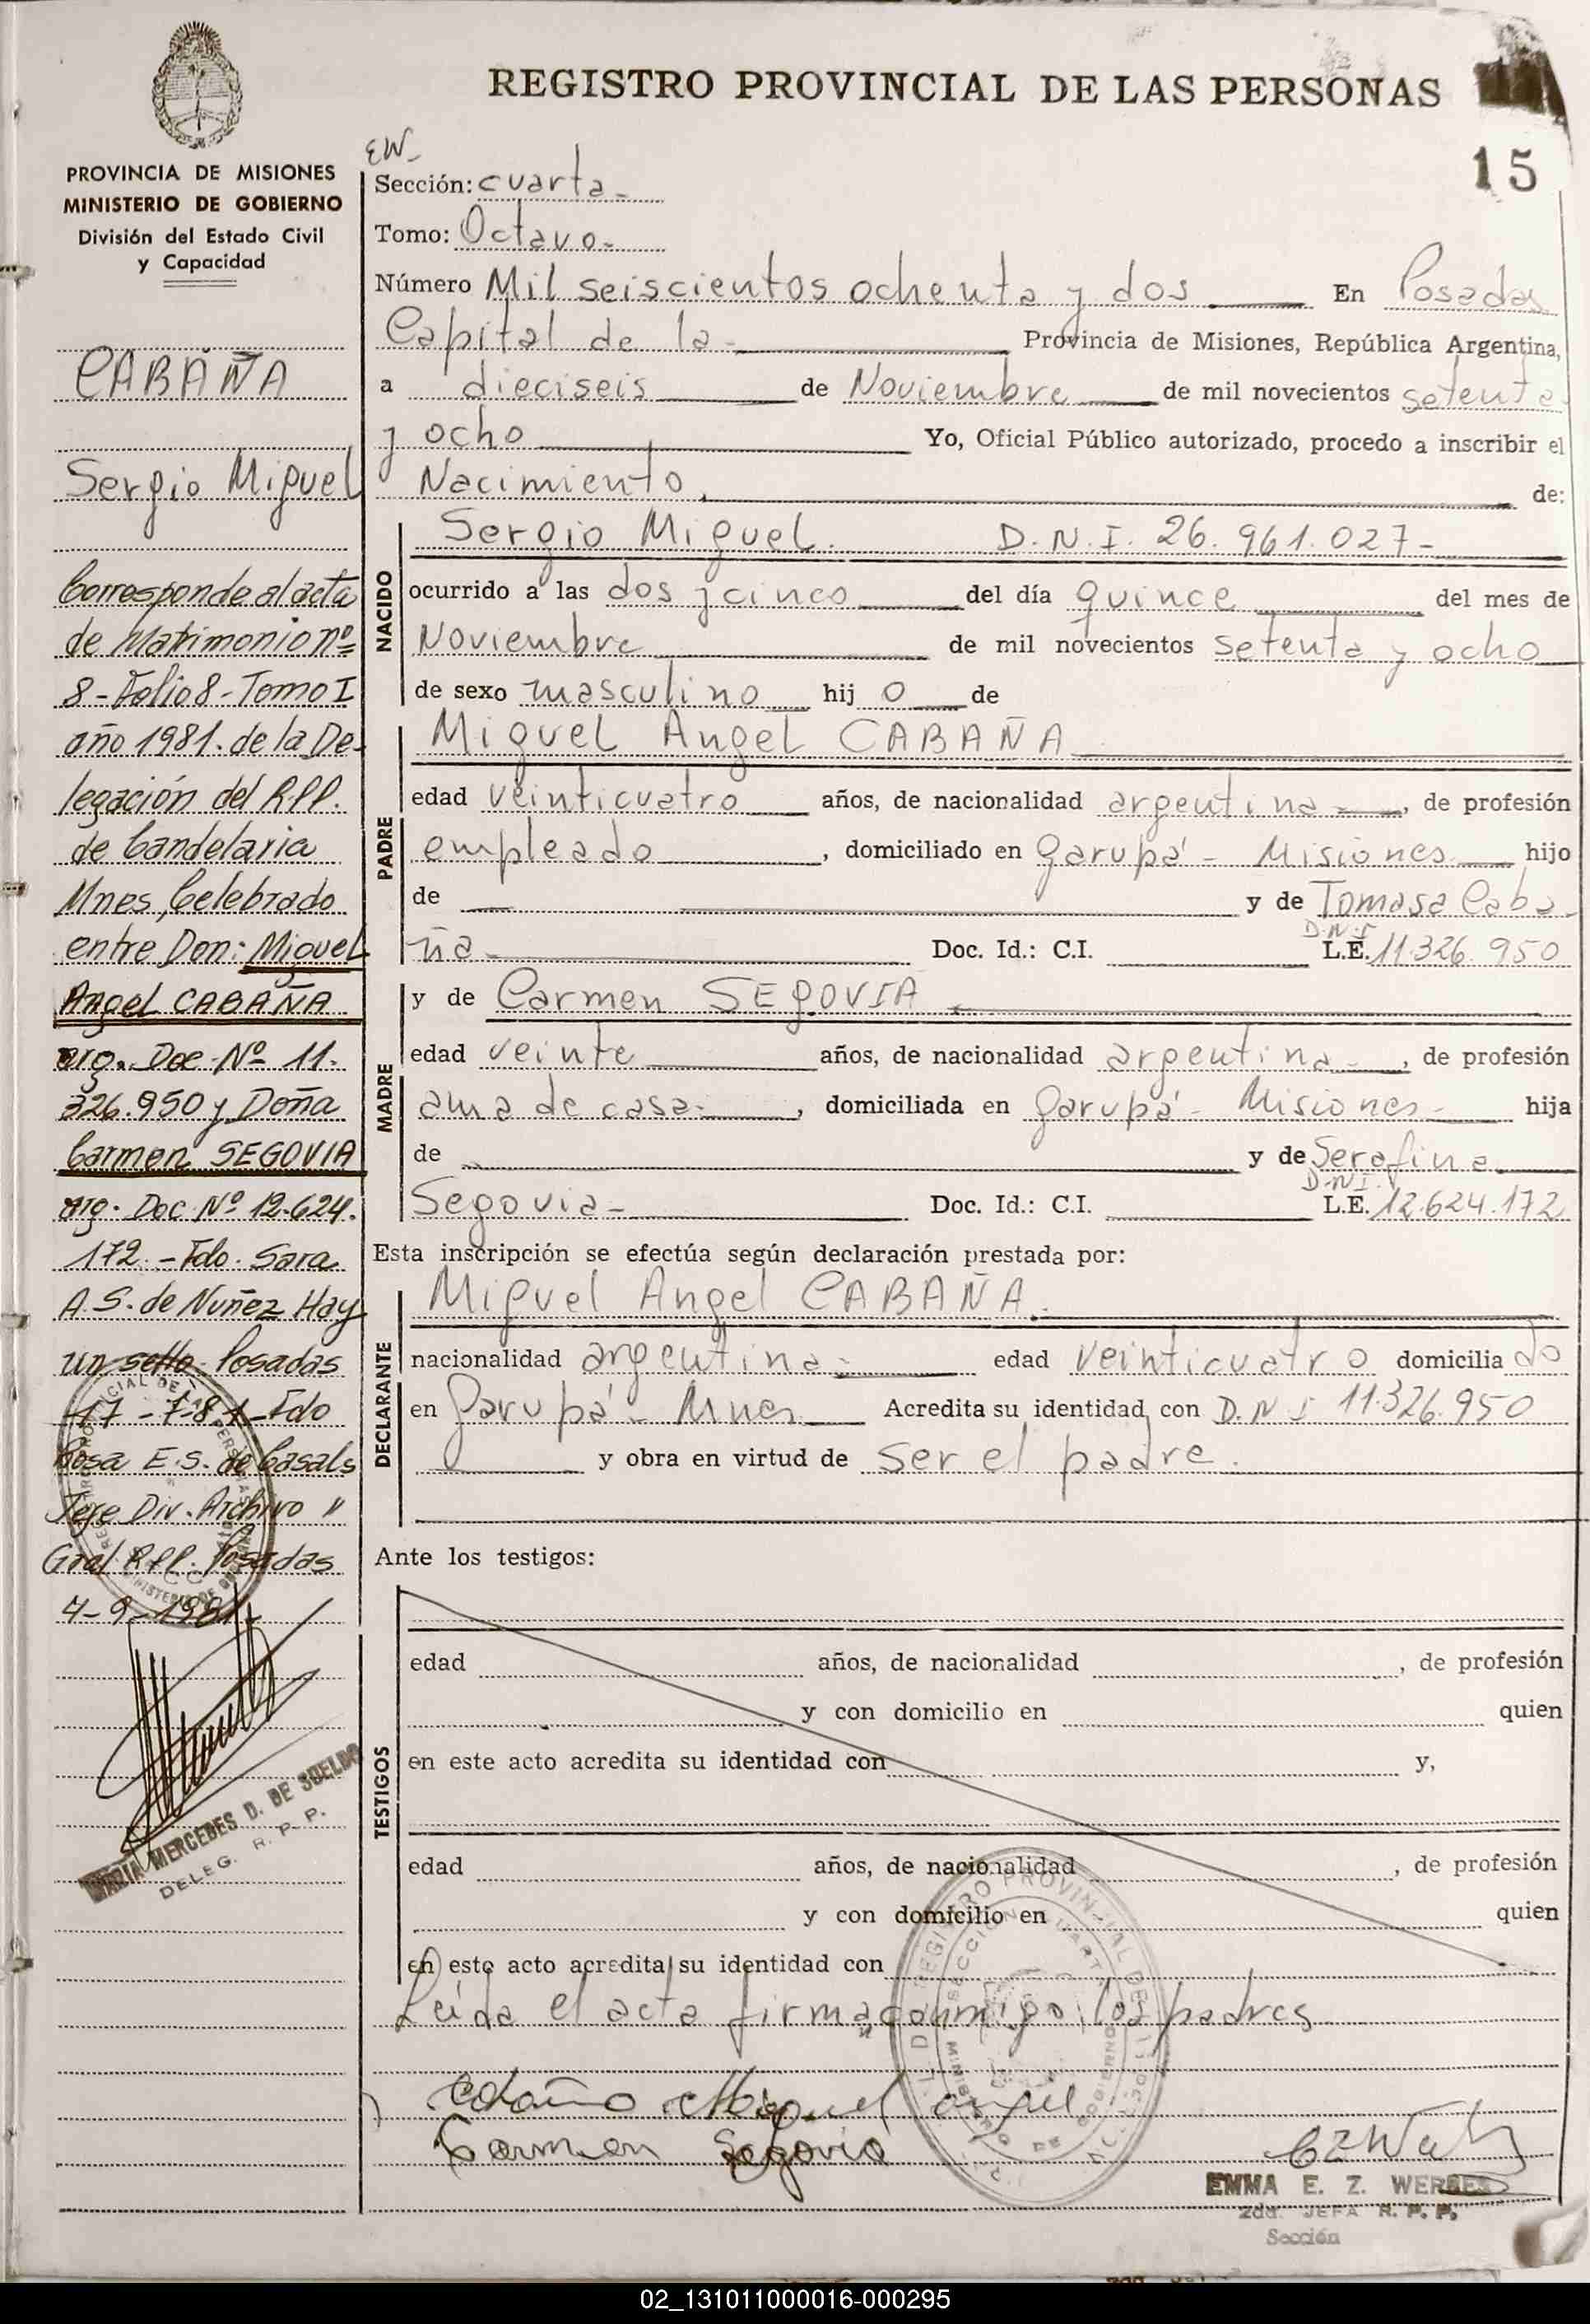 REGISTRO PROVINCIAL DE LAS PERSONAS
15
PROVINCIA DE MISIONES
MINISTERIO DE GOBIERNO
División del Estado Civil
y Capacidad
CABAÑA
Sergio Miguel
Corresponde al acta
de Matrimonio nº
8 - Folio 8 - Tomo I
año 1981. de la De-
legación del R.P.P.
de Candelaria
Mnes, Celebrado
entre Don: Miguel
Angel CABAÑA
arg. Doc. Nº 11.
326.950 y Doña
Carmen SEGOVIA
arg. Doc Nº 12.624.
172 - Fdo. Sara
A. S. de Nuñez Hay
un sello. Posadas
17-7-81 - Fdo
Rosa E. S. de Casals
Jefe Div. Archivo
Gral R.P.P. Posadas
4-9-1981
MARIA MERCEDES D. DE SUELDO
DELEG. R. P. P.
EW-
Sección: cuarta-
Tomo: Octavo-
Número Mil seiscientos ochenta y dos En Posadas
Capital de la- Provincia de Misiones, República Argentina,
a dieciseis de Noviembre de mil novecientos setenta
y ocho Yo, Oficial Público autorizado, procedo a inscribir el
Nacimiento, de:
NACIDO
Sergio Miguel. D.N.I. 26.961.027-
ocurrido a las dos y cinco del día quince del mes de
Noviembre de mil novecientos setenta y ocho
de sexo masculino hij o de
PADRE
Miguel Angel CABAÑA
edad veinticuatro años, de nacionalidad argentina-, de profesión
empleado, domiciliado en Garupá - Misiones hijo
de y de Tomasa Caba-
ña- Doc. Id.: C.I. D.N.I L.E. 11.326.950
MADRE
y de Carmen SEGOVIA
edad veinte años, de nacionalidad argentina-, de profesión
ama de casa-, domiciliada en Garupá - Misiones- hija
de y de Serafina
Segovia- Doc. Id.: C.I. D.N.I. L.E. 12.624.172
Esta inscripción se efectúa según declaración prestada por:
DECLARANTE
Miguel Angel CABAÑA.
nacionalidad argentina- edad veinticuatro domicilia do
en Garupá - Mnes Acredita su identidad con D.N.I 11.326.950
y obra en virtud de ser el padre.
Ante los testigos:
TESTIGOS
edad años, de nacionalidad, de profesión
y con domicilio en quien
en este acto acredita su identidad con y,
edad años, de nacionalidad, de profesión
y con domicilio en quien
en este acto acredita su identidad con
Leída el acta firman conmigo los padres
Cabaña Miguel angel
Carmen Segovia
EMMA E. Z. WERBES
2da. JEFA R. P. P.
Sección
02_131011000016-000295